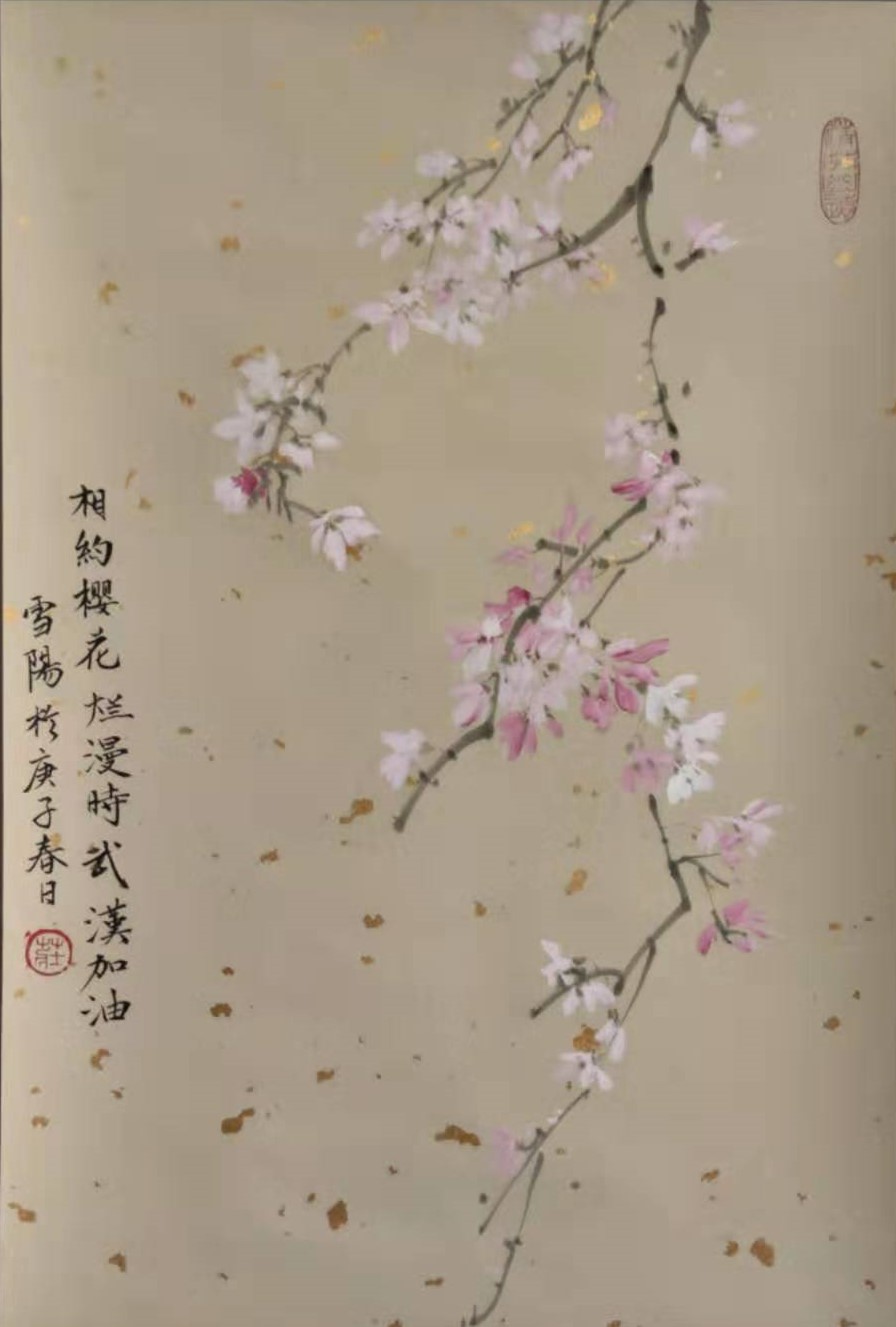 相約櫻花烂漫時武漢加油
雪陽於庚子春日
莊